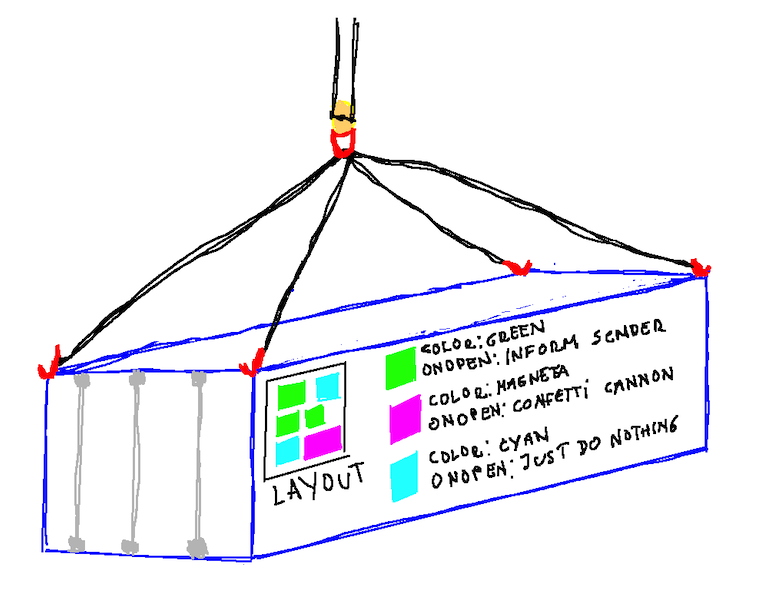 COLOR: GREEN
ONOPEN: INFORM SENDER
COLOR: MAGNETA
ONOPEN: CONFETTI CANNON
COLOR: CYAN
ONOPEN: JUST DO NOTHING
LAYOUT